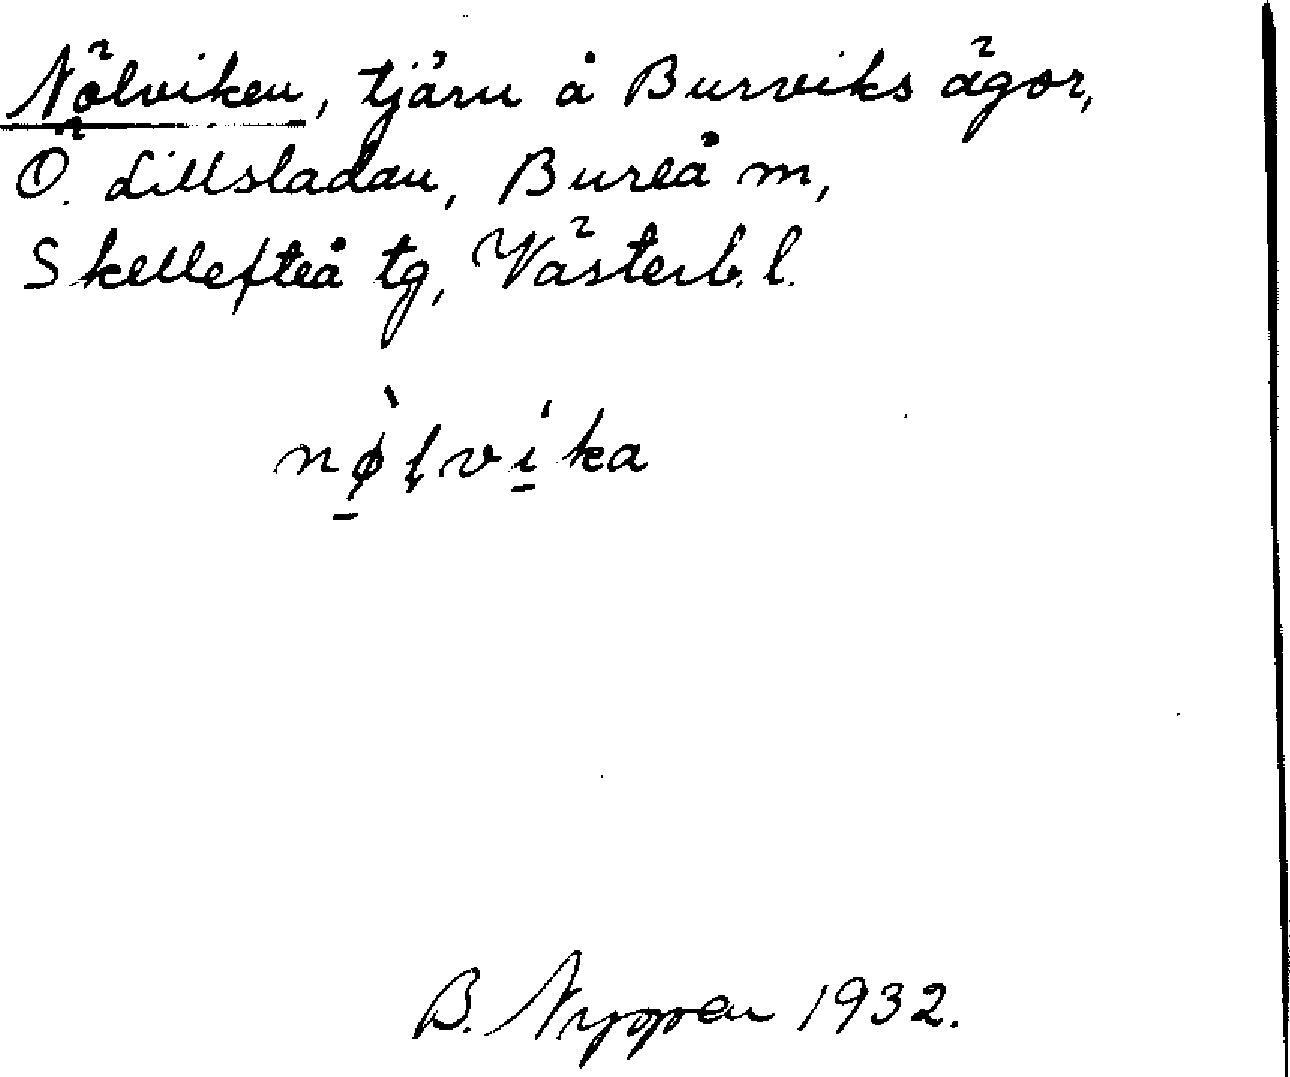 Nölviken, tjärn å Burviks ägor,
Ö. Lillsladan, Bureå m,
Skellefteå tg, Västerb. l.
nø̠̀ḷví̠ka
B. Nyppen 1932.